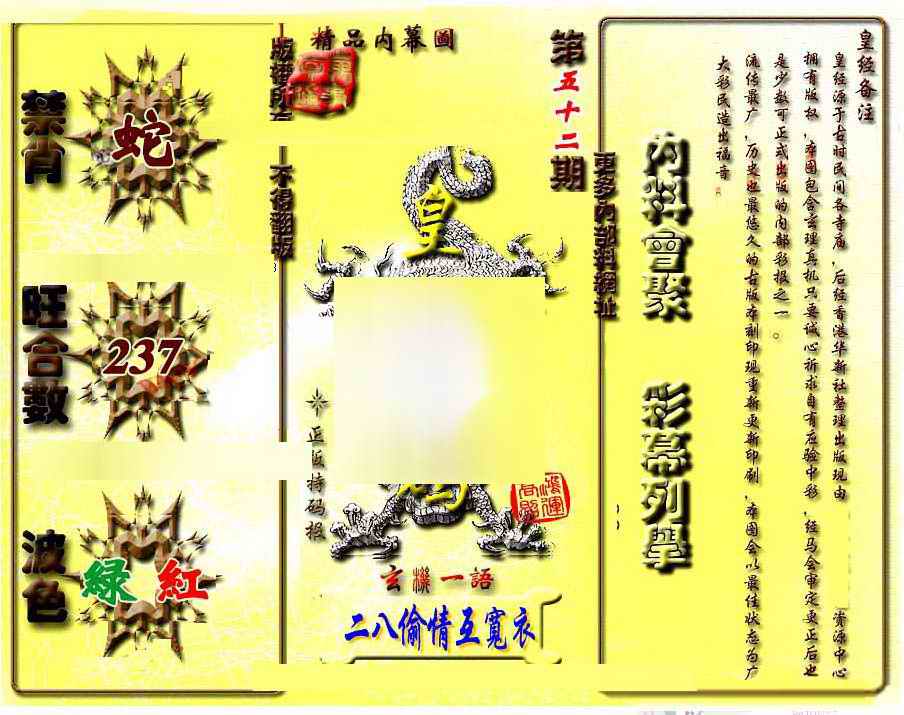 皇经备注
皇经源于古时民间各寺庙，后经香港华新社整理出版现由 资源中心
拥有版权，本图包含玄理真机只要诚心祈求自有应验中彩，经马会审定更正后也
是少数可正式出版的内部彩报之一。
流传最广，历史也最悠久的古版本刻印现重新更新印刷，本图会以最佳状态为广
大彩民造出福音
内料會聚 彩幕列舉
更多內部料網址
第五十二期
精品内幕圖
皇
正版特码报
鴻運
玄機一語
二八偷情互寬衣
版權所有
不得翻版
禁肖
蛇
旺合數
237
波色
緑 紅